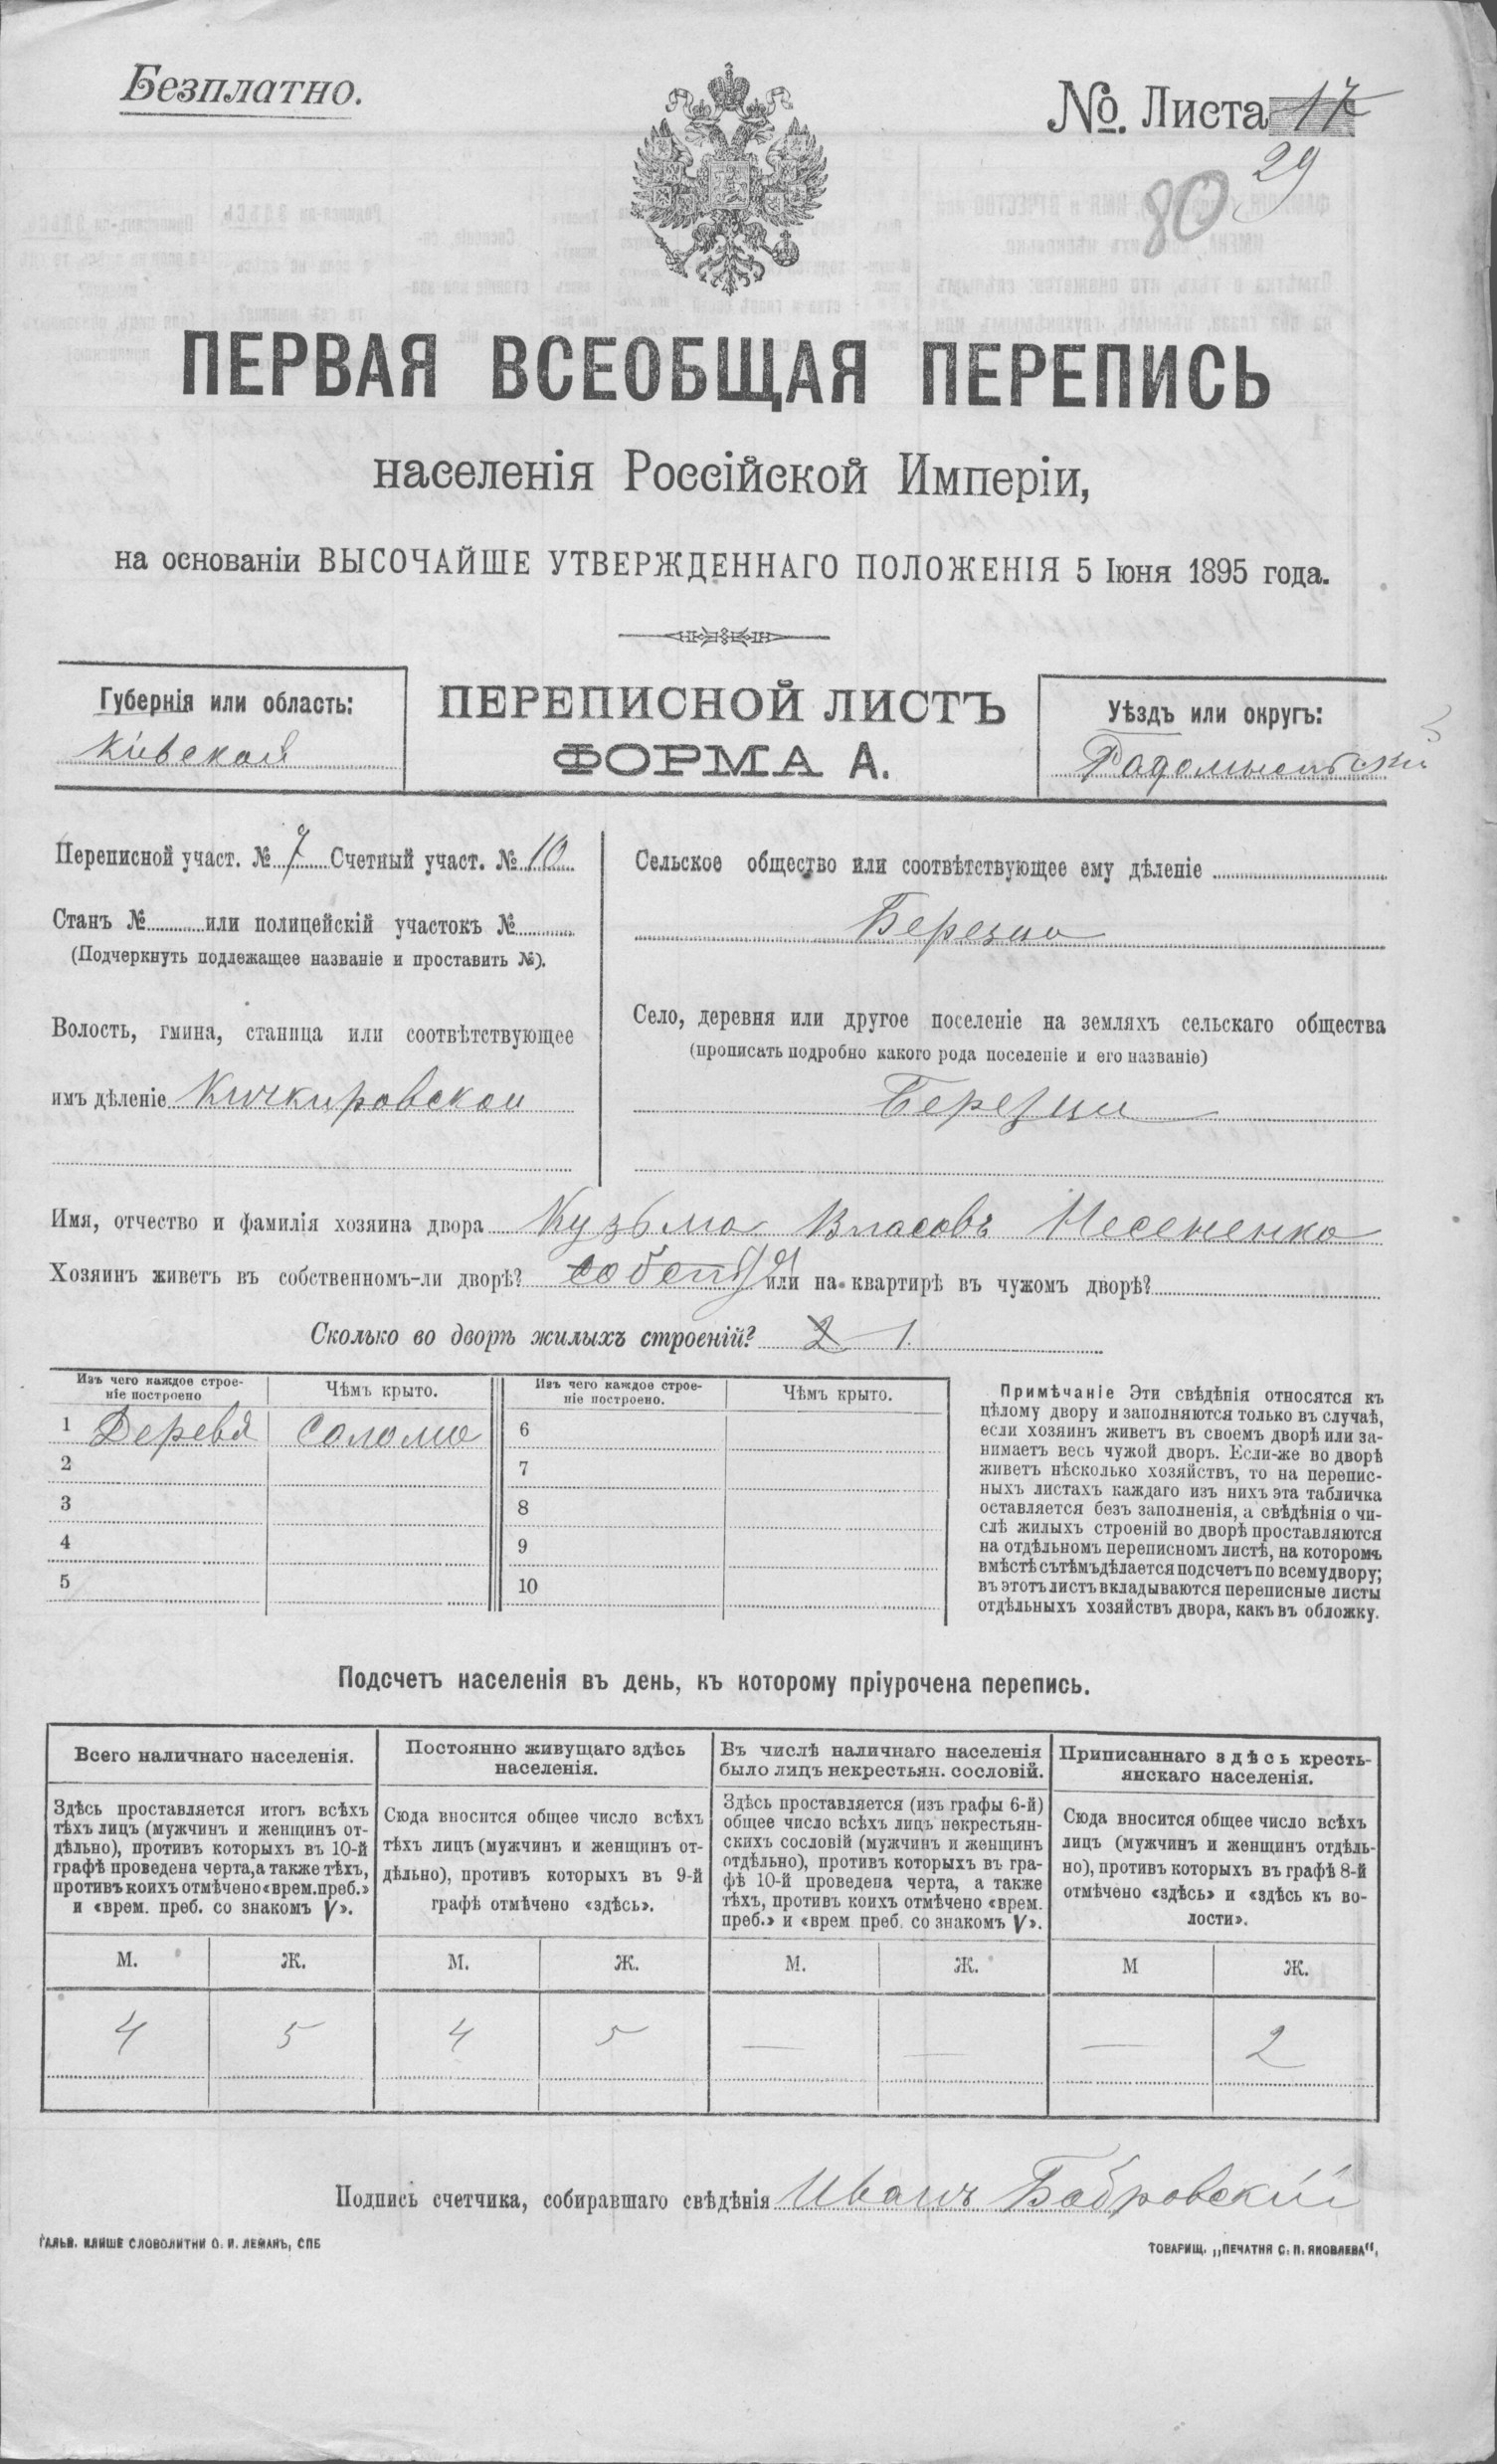 Безплатно.
№. Листа 17
29
80
ПЕРВАЯ ВСЕОБЩАЯ ПЕРЕПИСЬ
населенія Россійской Имперіи,
на основаніи ВЫСОЧАЙШЕ УТВЕРЖДЕННАГО ПОЛОЖЕНІЯ 5 Іюня 1895 года.
Губернія или область:
Кіевская
ПЕРЕПИСНОЙ ЛИСТЪ
ФОРМА А.
Уѣздъ или округъ:
Радомысльскій
Переписной участ. № 7 Счетный участ. № 10
Станъ № или полицейскій участокъ №
(Подчеркнуть подлежащее названіе и проставить №).
Волость, гмина, станица или соотвѣтствующее
имъ дѣленіе Кичкировская
Сельское общество или соотвѣтствующее ему дѣленіе
Березци
Село, деревня или другое поселеніе на земляхъ сельскаго общества
(прописать подробно какого рода поселеніе и его названіе)
Березци
Имя, отчество и фамилія хозяина двора Кузьма Власовъ
Хозяинъ живетъ въ собственномъ-ли дворѣ? или на квартирѣ въ чужомъ дворѣ?
Сколько во дворѣ жилыхъ строеній? 2 1
Изъ чего каждое строе-
ніе построено
Чѣмъ крыто.
Изъ чего каждое строе-
ніе построено.
Чѣмъ крыто.
1 Дерева Солома 6
2 7
3 8
4 9
5 10
Примѣчаніе Эти свѣдѣнія относятся къ
цѣлому двору и заполняются только въ случаѣ,
если хозяинъ живетъ въ своемъ дворѣ или за-
нимаетъ весь чужой дворъ. Если-же во дворѣ
живетъ нѣсколько хозяйствъ, то на перепис-
ныхъ листахъ каждаго изъ нихъ эта табличка
оставляется безъ заполненія, а свѣдѣнія о чи-
слѣ жилыхъ строеній во дворѣ проставляются
на отдѣльномъ переписномъ листѣ, на которомъ
вмѣстѣ съ тѣмъ дѣлается подсчетъ по всему двору;
въ этотъ листъ вкладываются переписные листы
отдѣльныхъ хозяйствъ двора, какъ въ обложку.
Подсчетъ населенія въ день, къ которому пріурочена перепись.
Всего наличнаго населенія.
Здѣсь проставляется итогъ всѣхъ
тѣхъ лицъ (мужчинъ и женщинъ от-
дѣльно), противъ которыхъ въ 10-й
графѣ проведена черта, а также тѣхъ,
противъ коихъ отмѣчено «врем. преб.»
и «врем. преб. со знакомъ V».
Постоянно живущаго здѣсь
населенія.
Сюда вносится общее число всѣхъ
тѣхъ лицъ (мужчинъ и женщинъ от-
дѣльно), противъ которыхъ въ 9-й
графѣ отмѣчено «здѣсь».
Въ числѣ наличнаго населенія
было лицъ некрестьян. сословій.
Здѣсь проставляется (изъ графы 6-й)
общее число всѣхъ лицъ некрестьян-
скихъ сословій (мужчинъ и женщинъ
отдѣльно), противъ которыхъ въ гра-
фѣ 10-й проведена черта, а также
тѣхъ, противъ коихъ отмѣчено «врем.
преб.» и «врем преб. со знакомъ V».
Приписаннаго здѣсь кресть-
янскаго населенія.
Сюда вносится общее число всѣхъ
лицъ (мужчинъ и женщинъ отдѣль-
но), противъ которыхъ въ графѣ 8-й
отмѣчено «здѣсь» и «здѣсь къ во-
лости».
М. Ж. М. Ж. М. Ж. М Ж.
4 5 4 5 — — — 2
Подпись счетчика, собиравшаго свѣдѣнія Иванъ Бобровскій
ГАЛЬВ. КЛИШЕ СЛОВОЛИТНИ О. И. ЛЕМАНЪ, СПБ
ТОВАРИЩ. „ПЕЧАТНЯ С. П. ЯКОВЛЕВА",